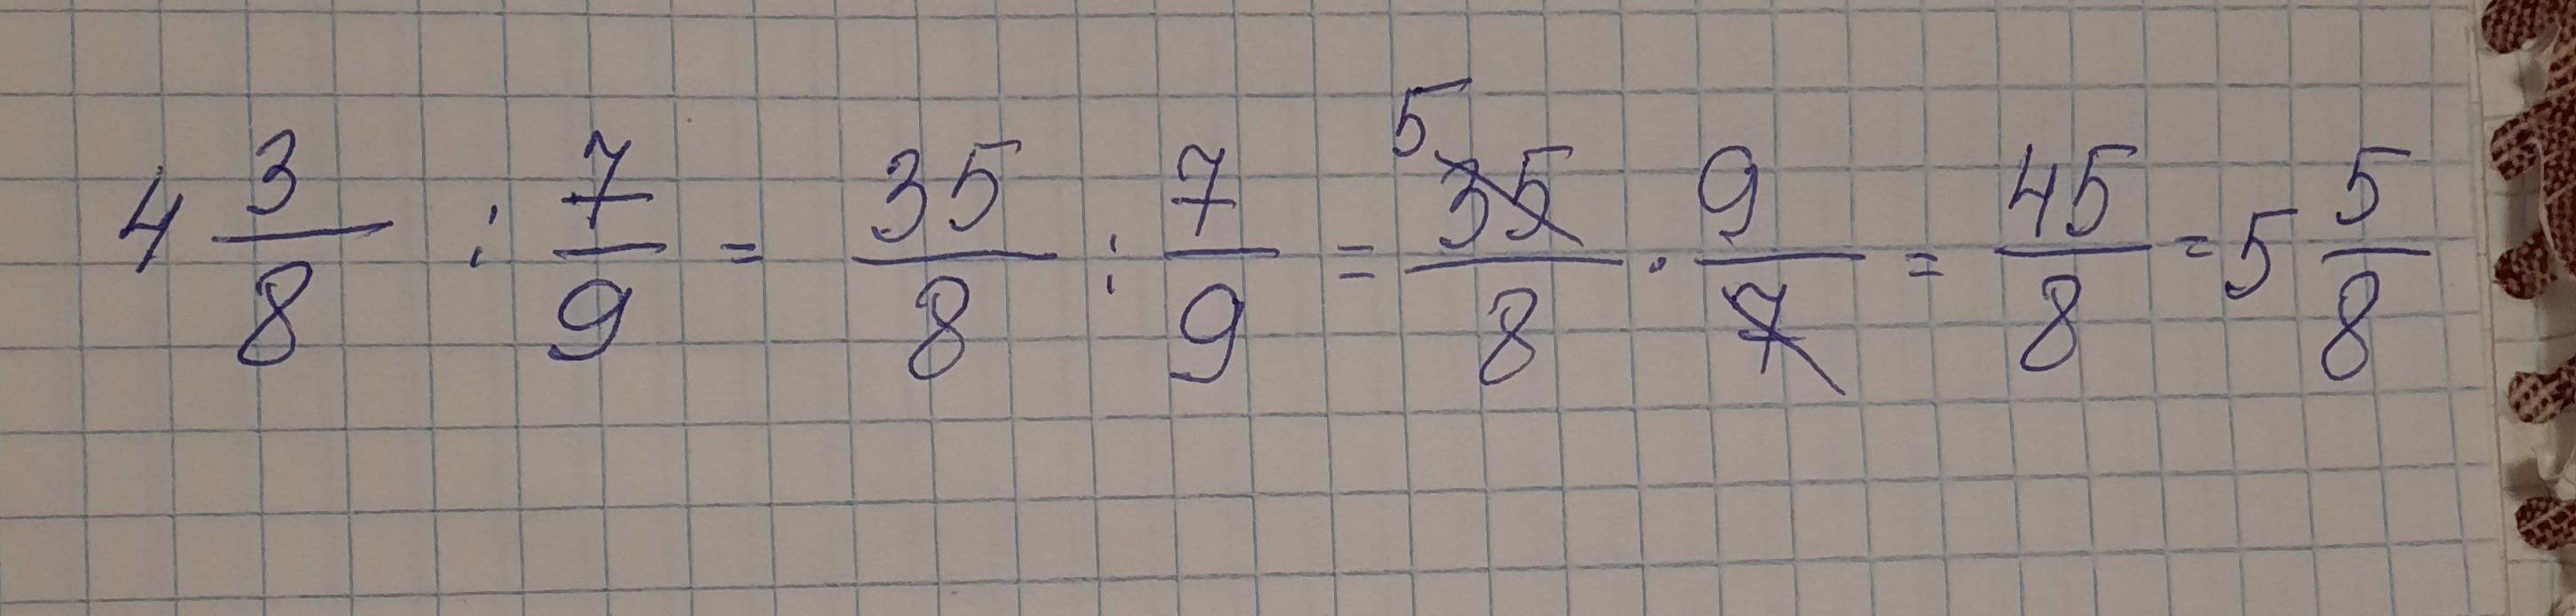 4 3/8 : 7/9 = 35/8 : 7/9 = 5 35/8 · 9/7 = 45/8 = 5 5/8